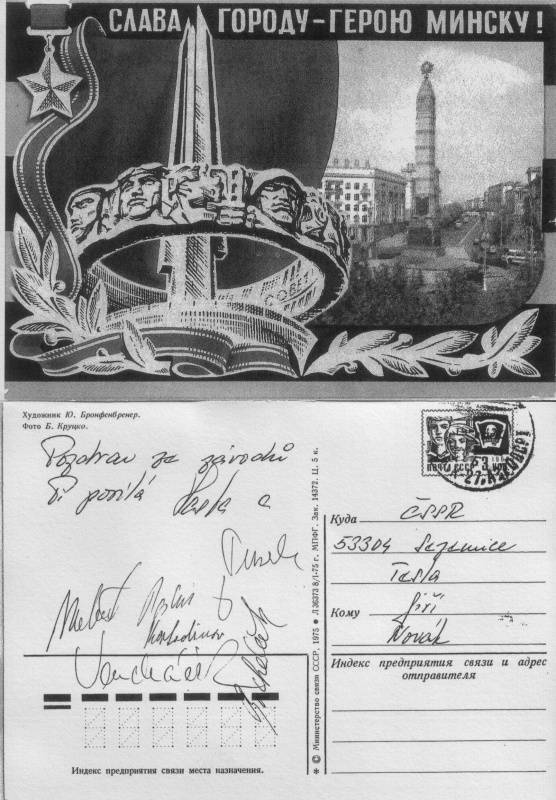 СЛАВА ГОРОДУ-ГЕРОЮ МИНСКУ!
СОВЕТ
Художник Ю. Бронфенбренер.
Фото Б. Круцко.
Pozdrav ze závodů
Ti posílá
ПОЧТА СССР 3 КОП
Куда ČSSR
53304 Sezemice
Tesla
Кому Jiří
Novák
Индекс предприятия связи и адрес отправителя
Индекс предприятия связи места назначения.
* © Министерство связи СССР, 1975 ● Л 36373 8/I-75 г. МПФГ. Зак. 14372. Ц. 5 к.